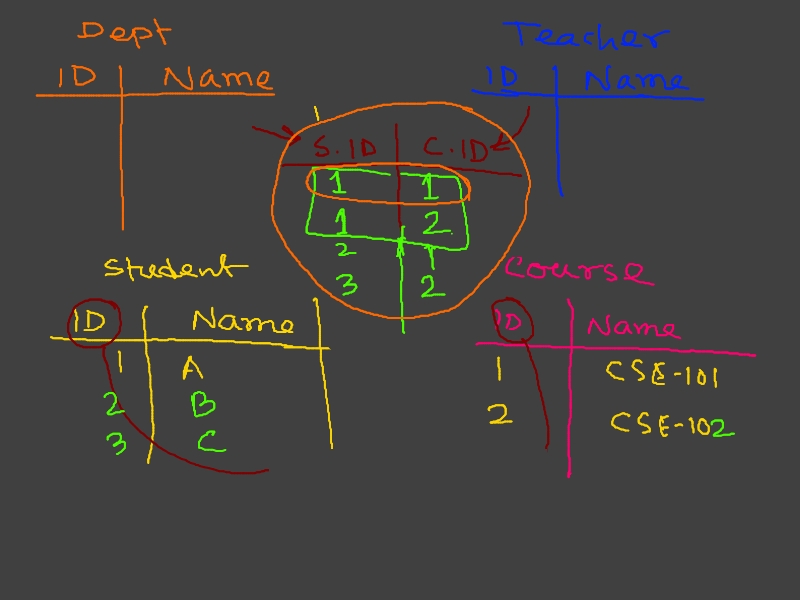 Dept
ID Name
Teacher
ID Name
S.ID C.ID
1 1
1 2
2 1
3 2
Student
ID Name
1 A
2 B
3 C
Course
ID Name
1 CSE-101
2 CSE-102